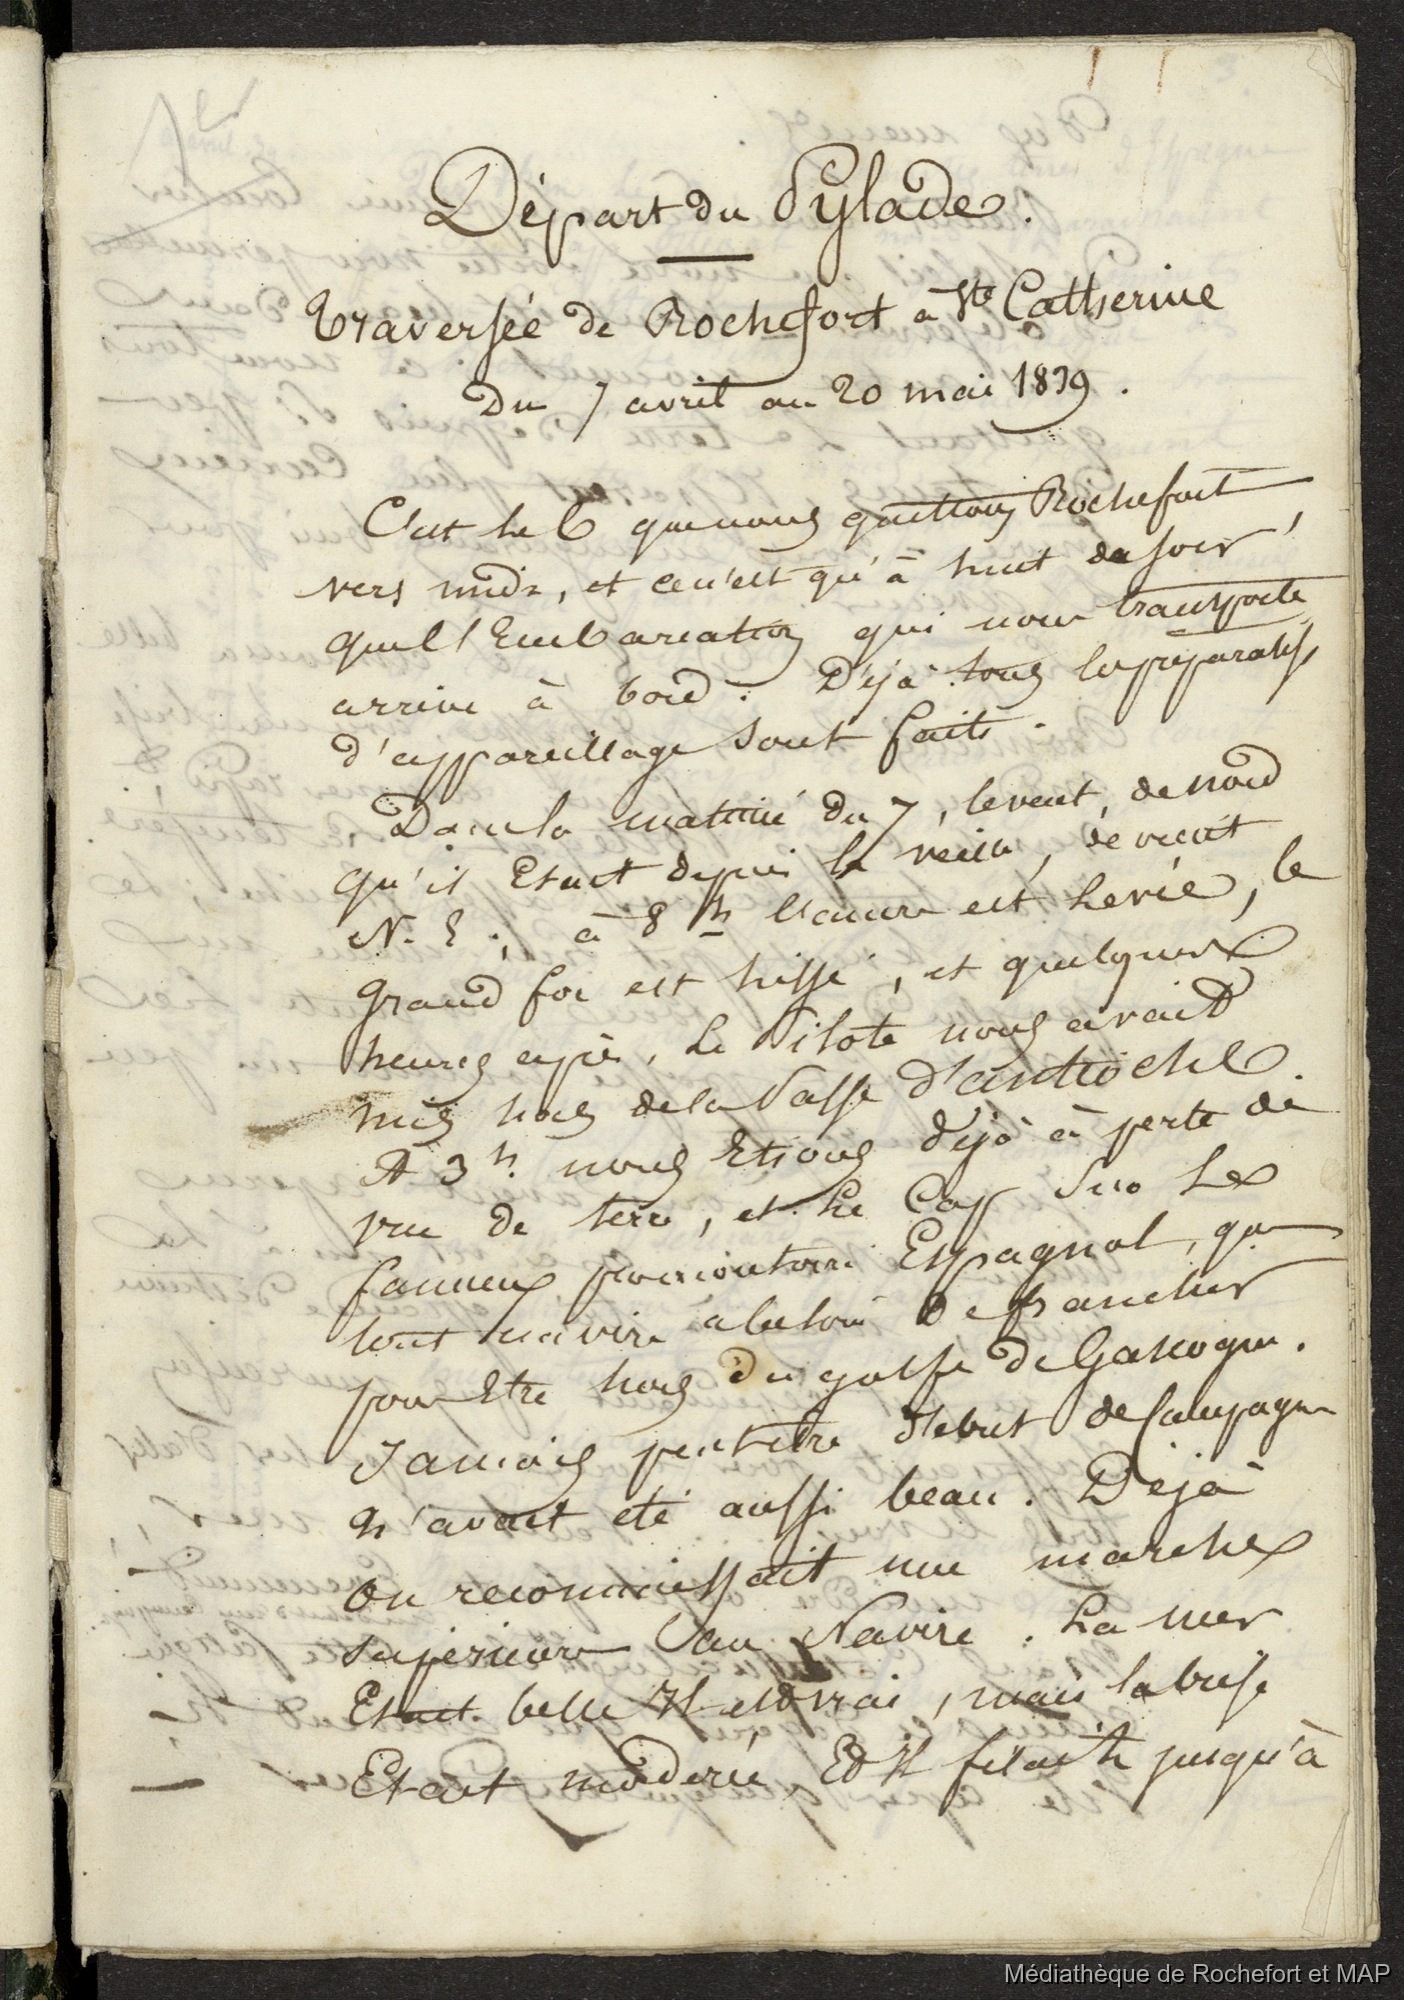 Départ du Pylade.
Traversée de Rochefort à Ste Catherine
Du 7 avril au 20 mai 1839.
C'est le 6 que nous quittons Rochefort
vers midi, et ce n'est qu'à huit du soir,
que l'Embarcation qui nous transporte
arrive à bord. Déjà tous les préparatifs
d'appareillage sont faits.
Dans la matinée du 7, le vent, de nord
qu'il Etait depuis la veille, devient
N. E.; à 8 h l'ancre est levée, le
grand foc est hissé, et quelques
heures après, le Pilote nous avait
mis hors de la Passe d'antioche.
A 3 h. nous Etions déjà à perte de
vue de terre, et le Cap sur le
fameux promontoire Espagnol, que
tout navire a besoin de francher
pour Etre hors du golfe de Gascogne.
Jamais peutêtre début de Campagne
n'avait été aussi beau. Déjà
on reconnaissait une marche
supérieure au Navire. La mer
Etait belle Il est vrai, mais la brise
Etait modérée, Et Il filait jusqu'à
Médiathèque de Rochefort et MAP